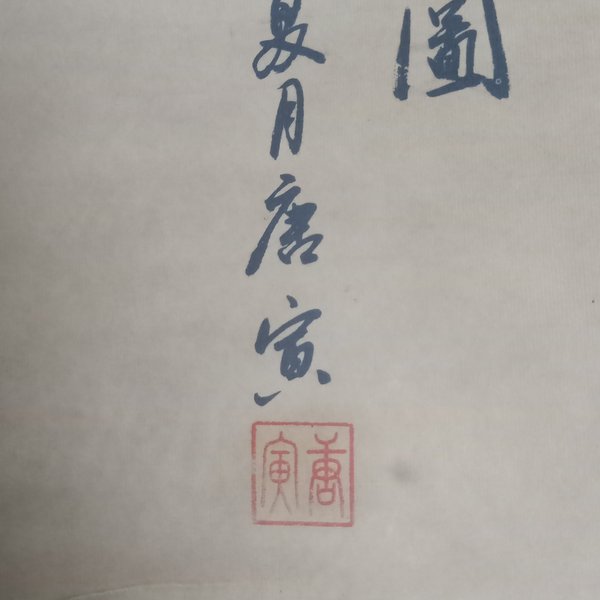 圖
夏月唐寅
唐寅